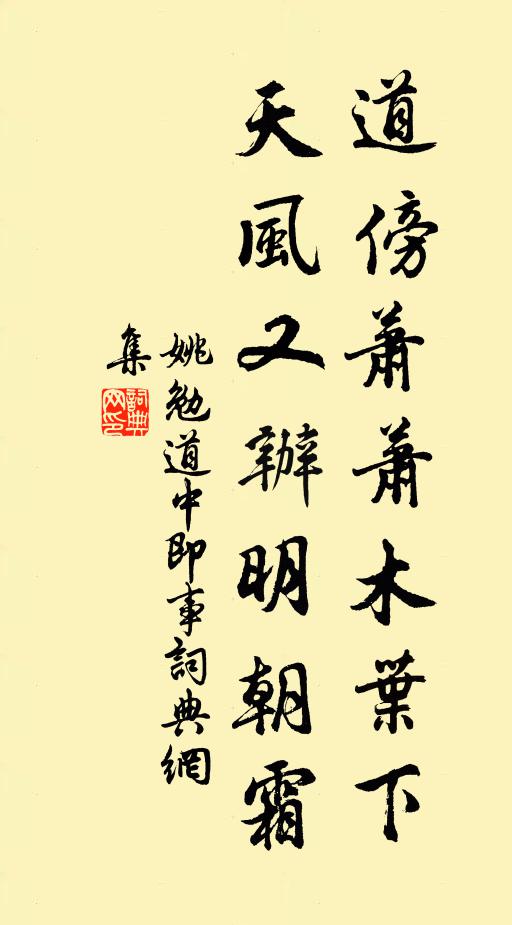 道傍蕭蕭木葉下
天風又辦明朝霜
姚勉道中即事詞典網
集
詞典
网印